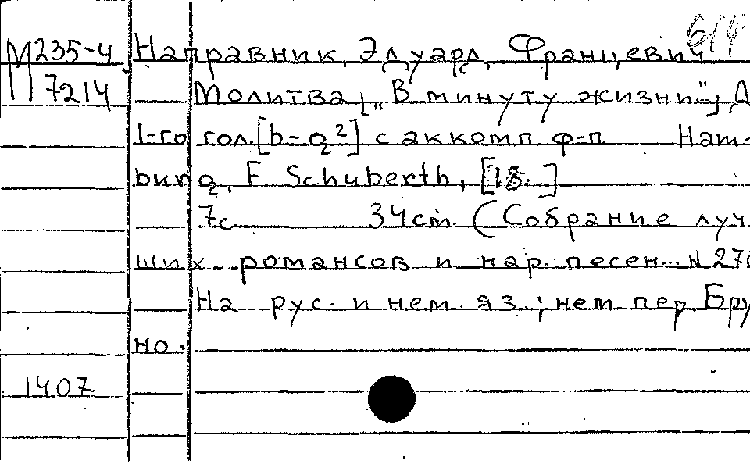 М235-4 Направник, Эдуард Францевич
7214 Молитва [„В минуту жизни”] Д
1-го гол. [b-g²] с аккомп. ф-п Ham-
burg, F. Schuberth, [18. ]
7с 34cm (Собрание луч
ших романсов и нар. песен. N 270
На рус. и нем. яз.; нем. пер. Бру
но.
1407